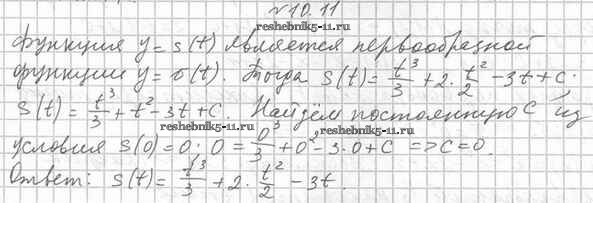 №10.11
reshebnik5-11.ru
Функция y = s(t) является первообразной
функции y = v(t). Тогда s(t) = t³/3 + 2·t²/2 − 3t + C.
s(t) = t³/3 + t² − 3t + C. Найдём постоянную C из
reshebnik5-11.ru
условия s(0) = 0: 0 = 0³/3 + 0² − 3·0 + C => C = 0.
reshebnik5-11.ru
Ответ: s(t) = t³/3 + 2·t²/2 − 3t.